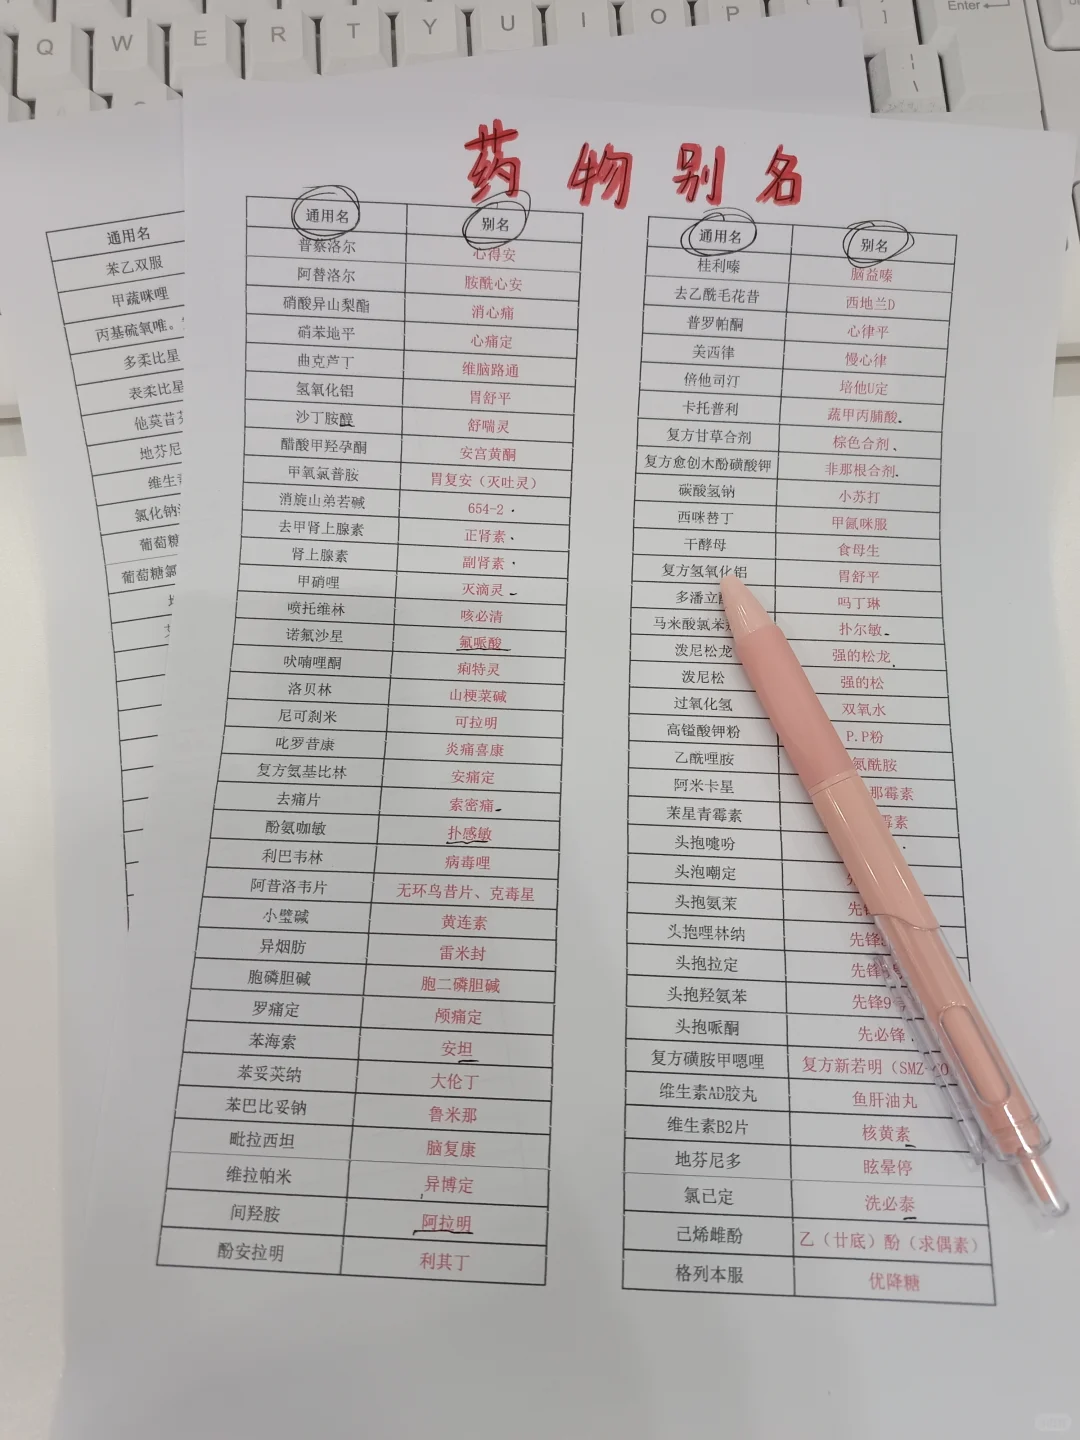 Q W E R T Y U I O P
Enter
药物别名
通用名
苯乙双服
甲蔬咪哩
多柔比星
表柔比星
通用名 别名
普萘洛尔 心得安
阿替洛尔 胺酰心安
硝酸异山梨酯 消心痛
硝苯地平 心痛定
曲克芦丁 维脑路通
氢氧化铝 胃舒平
沙丁胺醇 舒喘灵
醋酸甲羟孕酮 安宫黄酮
甲氧氯普胺 胃复安（灭吐灵）
消旋山弟若碱 654-2
去甲肾上腺素 正肾素
肾上腺素 副肾素
甲硝哩 灭滴灵
喷托维林 咳必清
诺氟沙星 氟哌酸
呋喃哩酮 痢特灵
洛贝林 山梗菜碱
尼可刹米 可拉明
叱罗昔康 炎痛喜康
复方氨基比林 安痛定
去痛片 索密痛
酚氨咖敏 扑感敏
利巴韦林 病毒哩
阿昔洛韦片 无环鸟昔片、克毒星
小璧碱 黄连素
异烟肪 雷米封
胞磷胆碱 胞二磷胆碱
罗痛定 颅痛定
苯海索 安坦
苯妥英纳 大伦丁
苯巴比妥钠 鲁米那
毗拉西坦 脑复康
维拉帕米 异博定
间羟胺 阿拉明
酚安拉明 利其丁
通用名 别名
桂利嗪 脑益嗪
去乙酰毛花昔 西地兰D
普罗帕酮 心律平
美西律 慢心律
倍他司汀 培他U定
卡托普利 蔬甲丙脯酸
复方甘草合剂 棕色合剂
复方愈创木酚磺酸钾 非那根合剂
碳酸氢钠 小苏打
西咪替丁 甲氰咪服
干酵母 食母生
复方氢氧化铝 胃舒平
多潘立 吗丁琳
马来酸氯苯 扑尔敏
泼尼松龙 强的松龙
泼尼松 强的松
过氧化氢 双氧水
高镒酸钾粉 P.P粉
乙酰哩胺 氮酰胺
阿米卡星 那霉素
苿星青霉素 霉素
头抱噻吩
头泡嘲定
头抱氨苿 先
头抱哩林纳 先锋
头抱拉定 先锋
头抱羟氨苯 先锋9
头抱哌酮 先必锋
复方磺胺甲嗯哩 复方新若明（SMZ-CO
维生素AD胶丸 鱼肝油丸
维生素B2片 核黄素
地芬尼多 眩晕停
氯已定 洗必泰
己烯雌酚 乙（廿底）酚（求偶素）
格列本服 优降糖